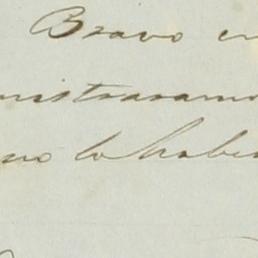 Bravo en
nistraramo
no lo haber